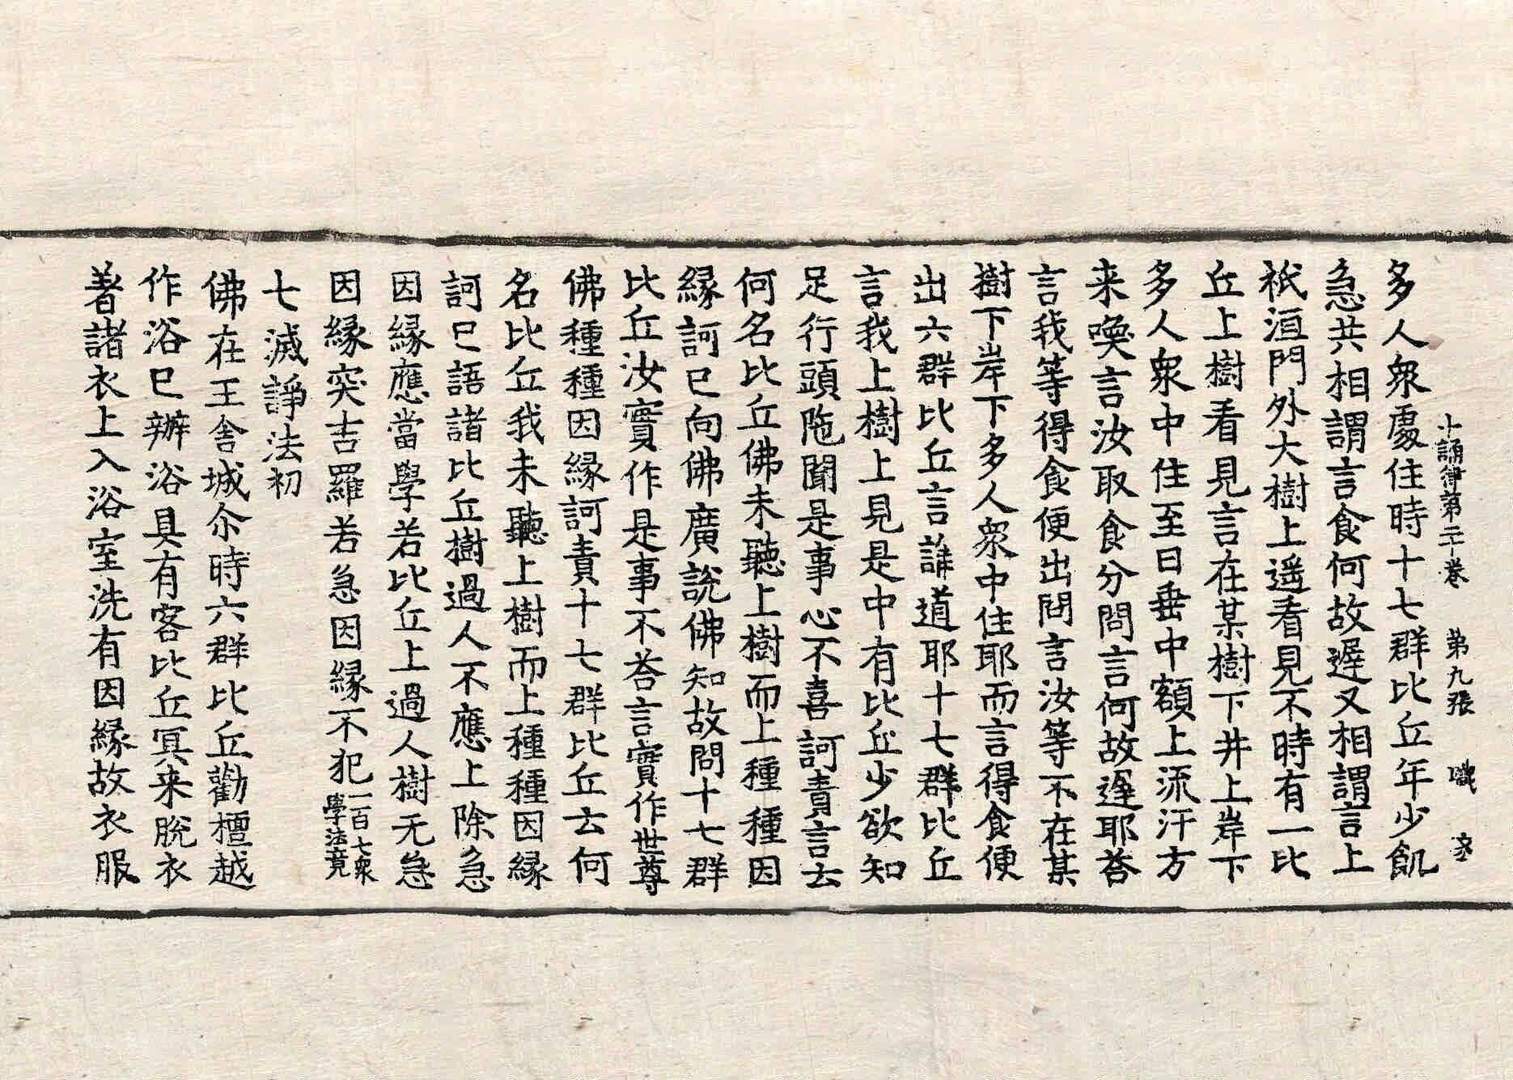 十誦律第二十卷 第九張 職
多人衆處住時十七群比丘年少飢
急共相謂言食何故遲又相謂言上
祇洹門外大樹上遥看見不時有一比
丘上樹看見言在某樹下井上岸下
多人衆中住至日垂中額上流汗方
来喚言汝取食分問言何故遲耶荅
言我等得食便出問言汝等不在某
樹下岸下多人衆中住耶而言得食便
出六群比丘言誰道耶十七群比丘
言我上樹上見是中有比丘少欲知
足行頭陁聞是事心不喜訶責言云
何名比丘佛未聽上樹而上種種因
縁訶已向佛廣說佛知故問十七群
比丘汝實作是事不荅言實作世尊
佛種種因縁訶責十七群比丘云何
名比丘我未聽上樹而上種種因縁
訶已語諸比丘樹過人不應上除急
因縁應當學若比丘上過人樹无急
因縁突吉羅若急因縁不犯一百七衆學法竟
七滅諍法初
佛在王舍城尒時六群比丘勸檀越
作浴已辦浴具有客比丘冥来脫衣
著諸衣上入浴室洗有因縁故衣服